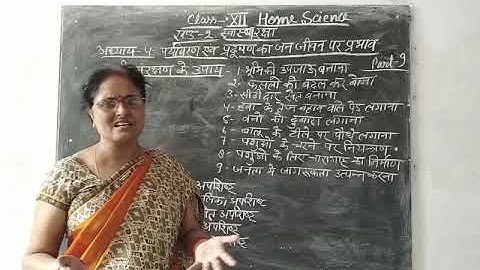 Class- XII Home Science
खण्ड-2 स्वास्थ्यरक्षा
अध्याय-4- पर्यावरण एवं प्रदूषण का जन जीवन पर प्रभाव
रक्षण के उपाय - 1- भूमि को उपजाऊ बनाना Part-9
2- फसलों को बदल कर बोना
3- सीढ़ीदार खेत बनाना
4- हवा के वाले पेड़ लगाना
5- वनों को दुबारा लगाना
6- बालू के टीले पर पौधे लगाना
7- पशुओं के चरने पर नियन्त्रण
8- पशुओं के लिए चारागाह का निर्माण
9- जनता में जागरूकता उत्पन्न करना
अपशिष्ट
अपशिष्ट
अपशिष्ट
अपशिष्ट